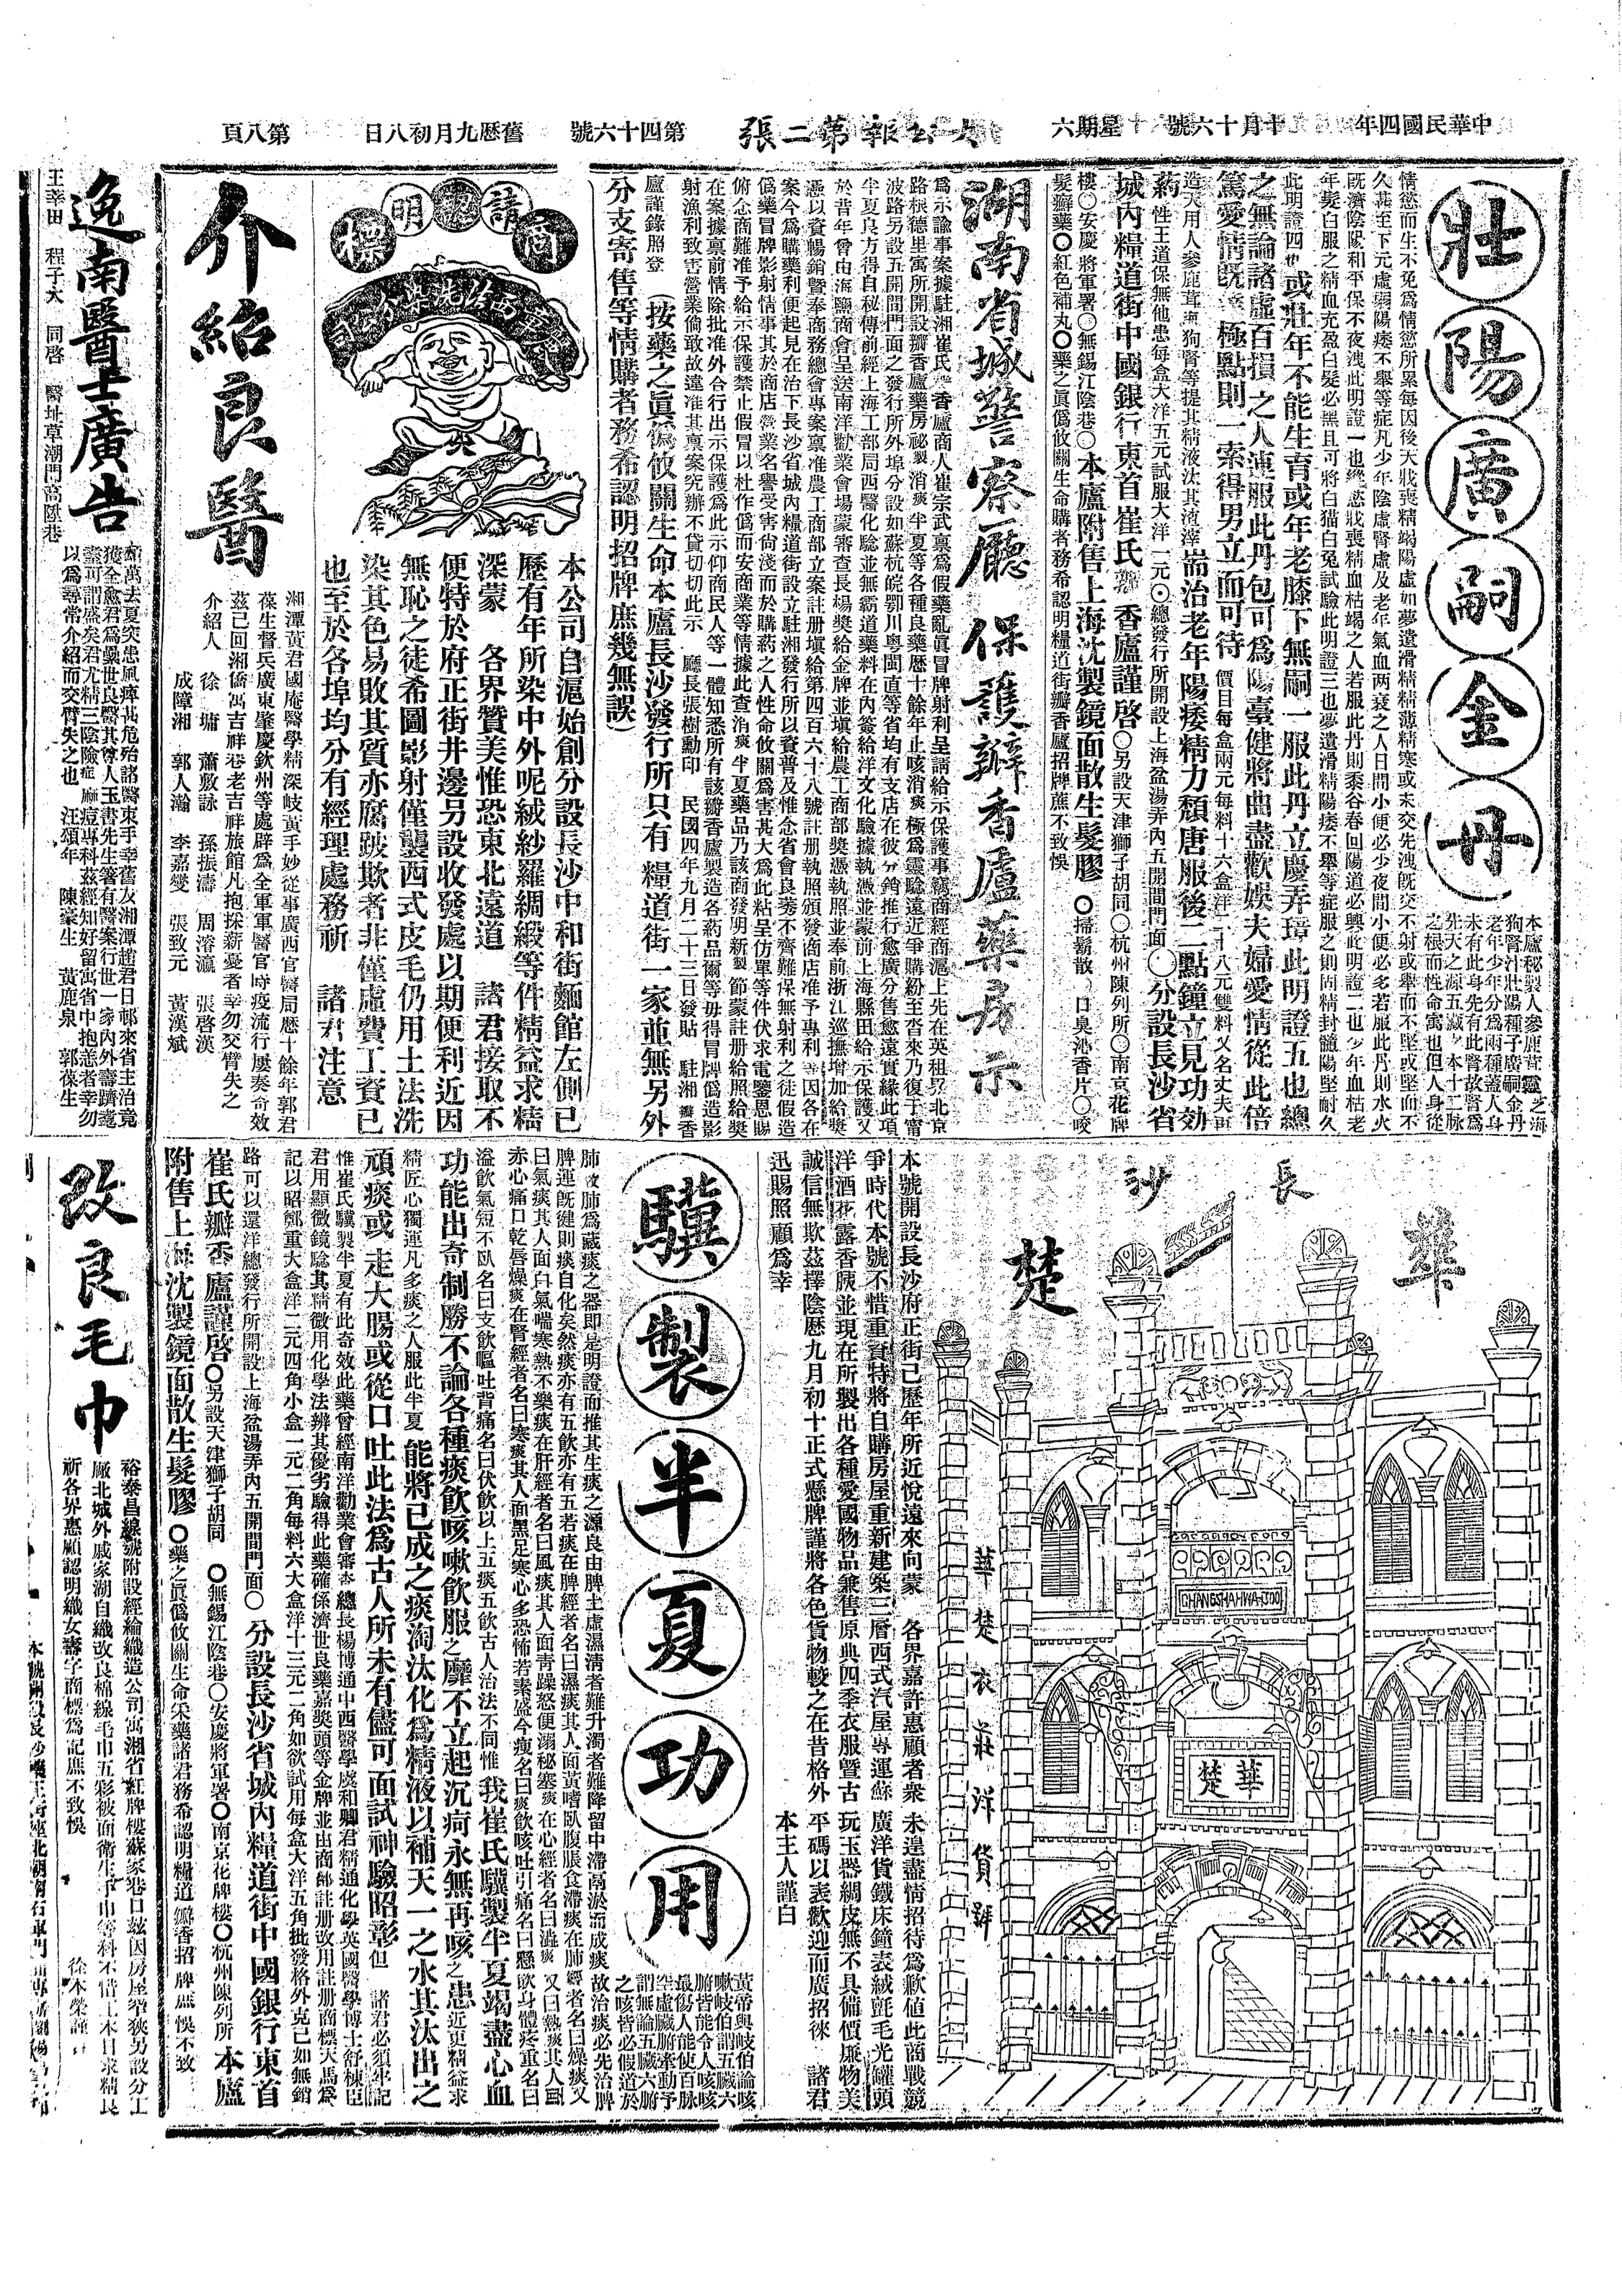 中華民國四年
十月十六號
星期六
大公報第二張
第四十六號
舊曆九月初八日
第八頁
壯陽廣嗣金丹
本廬秘製人參鹿茸靈之海
狗腎汁壯陽種子廣嗣金丹
老年少年分為兩種蓋人身
未有此身先有此腎故腎為
先天之源五臟之本十二脉
之根而性命寓也但人身從
情慾而生不免為情慾所累每因後天戕喪精竭陽虛如夢遺滑精精薄精寒或未交先洩旣交不射或舉而不堅或堅而不
久甚至下元虛弱陽痿不舉等症凡少年陰虛腎虛及老年氣血兩衰之人日間小便必少夜間小便必多若服此丹則水火
旣濟陰陽和平保不夜洩此明證一也縱慾戕喪精血枯竭之人若服此丹則黍谷春回陽道必興此明證二也少年血枯老
年髮白服之精血充盈白髮必黑且可將白猫白兔試驗此明證三也夢遺滑精陽痿不舉等症服之則固精封髓陽堅耐久
此明證四也或壯年不能生育或年老膝下無嗣一服此丹立慶弄璋此明證五也總
之無論諸虛百損之人連服此丹包可為陽臺健將曲盡歡娛夫婦愛情從此倍
篤愛情旣達極點則一索得男立而可待
價目每盒兩元每料十六盒洋二十八元雙料又名丈夫再
造大用人參鹿茸海狗腎等提其精液汰其渣滓耑治老年陽痿精力頹唐服後二點鐘立見功效
葯性王道保無他患每盒大洋五元試服大洋一元⊙總發行所開設上海盆湯弄內五開間門面◯分設長沙省
城內糧道街中國銀行東首崔氏瓣香廬謹啓○另設天津獅子胡同○杭州陳列所○南京花牌
樓○安慶將軍署○無錫江陰巷○本廬附售上海沈製鏡面散生髮膠
髮癬藥○紅色補丸○藥之眞僞攸關生命購者務希認明糧道街瓣香廬招牌庶不致悞
湖南省城警察廳保護瓣香廬藥房示
為示諭事案據駐湘崔氏瓣香廬商人崔宗武稟為假藥亂眞冒牌射利呈請給示保護事竊商經商滬上先在英租界北京
路根德里寓所開設瓣香廬藥房祕製消痰半夏等各種良藥曆十餘年止咳消痰極為靈驗遠近爭購紛至沓來乃復于甯
波路另設五開間門面之發行所外埠分設如蘇杭皖鄂川粵閩直等省均有支店在彼分銷推行愈廣分售愈遠實緣此項
半夏良方得自秘傳前經上海工部局西醫化驗並無霸道藥料在內簽給洋文化驗據執憑並蒙前上海縣田給示保護又
於昔年曾由滬鹽商會呈送南洋勸業會場蒙審查長楊獎給金牌並塡給農工商部獎憑執照並奉前浙江巡撫增加給獎
憑以資暢銷暨奉商務總會專案稟准農工商部立案註册塡給第四百六十八號註册執照頒發商店准予專利等因各在
案今為購藥利便起見在治下長沙省城內糧道街設立駐湘發行所以資普及惟念省會良莠不齊難保無射利之徒假造
僞藥冒牌影射情事其於商店營業名譽受害尚淺而於購葯之人性命攸關為害甚大為此粘呈仿單等件伏求電鑒恩賜
俯念商難准予給示保護禁止假冒以杜作僞而安商業等情據此查消痰半夏藥品乃該商發明新製節蒙註册給照給獎
在案據稟前情除批准外合行出示保護為此示仰商民人等一體知悉所有該瓣香廬製造各葯品爾等毋得冒牌僞造影
射漁利致害營業倘敢故違准其稟案究辦不貸切切此示
廳長張樹勳印
民國四年九月二十三日發貼
駐湘瓣香
廬謹錄照登
(按藥之眞僞攸關生命本廬長沙發行所只有糧道街一家並無另外
分支寄售等情購者務希認明招牌庶幾無誤)
請認明商標
本公司自滬始創分設長沙中和街麵館左側已
歷有年所染中外呢絨紗羅綢緞等件精益求精
深蒙各界贊美惟恐東北遠道諸君接取不
便特於府正街井邊另設收發處以期便利近因
無恥之徒希圖影射僅襲西式皮毛仍用土法洗
染其色易敗其質亦腐跛欺者非僅虛費工資已
也至於各埠均分有經理處務祈諸君注意
介紹良醫
湘潭黃君國庵醫學精深岐黃手妙從事廣西官醫局曆十餘年郭君
葆生督兵廣東肇慶欽州等處辟為全軍軍醫官時疫流行屢奏奇效
茲已回湘僑寓吉祥巷老吉祥旅館凡抱採薪憂者幸勿交臂失之
介紹人
徐墉
蕭敷詠
孫振濤
周濬瀛
張啓漢
成障湘
郭人瀚
李嘉燮
張致元
黃漢斌
逸南醫士廣告
穫全愈君為蘗世良醫其尊人玉書先生著有醫案行世一家內外壽躋耄
耋可謂盛矣君尤精三陰險症麻痘專科茲經知好留寓省中抱恙者幸勿
以為尋常介紹而交臂失之也
汪頌年
陳豪生
黃鹿泉
郭葆生
王莘田
程子大
同啓
醫址草潮門高陞巷
長沙
華楚
CHANGSHAHWATSOO
華楚
華楚衣莊洋貨號
本號開設長沙府正街已歷年所近悅遠來向蒙各界嘉許惠顧者衆未遑盡情招待為歉値此商戰競
爭時代本號不惜重資特將自購房屋重新建築三層西式汽屋專運蘇廣洋貨鐵床鐘表絨氈毛光罐頭
洋酒花露香胰並現在所製出各種愛國物品兼售原典四季衣服暨古玩玉器綢皮無不具備價廉物美
誠信無欺茲擇陰曆九月初十正式懸牌謹將各色貨物較之在昔格外平碼以表歡迎而廣招徠諸君
迅賜照顧為幸
本主人謹白
驥製半夏功用
黃帝與岐伯論咳
嗽岐伯謂五臟六
腑皆能令人咳咳
最傷人能使百脉
空虛臟腑牽動予
謂無論五臟六腑
之咳皆必假道於
肺故肺為藏痰之器即是明證而推其生痰之源良由脾土虛濕清者難升濁者難降留中滯鬲淤而成痰故治痰必先治脾
脾運旣健則痰自化矣然痰亦有五飲亦有五若痰在脾經者名曰濕痰其人面黃嗜臥腹脹食滯痰在肺經者名曰燥痰又
曰氣痰其人面白氣喘寒熱不樂痰在肝經者名曰風痰其人面青躁怒便溺秘塞痰在心經者名曰熱痰其人面
赤心痛口乾唇燥痰在腎經者名曰寒痰其人面黑足寒心多恐怖若素盛今瘦名曰痰飲咳吐引痛名曰懸飲身體疼重名曰
溢飲氣短不臥名曰支飲嘔吐背痛名曰伏飲以上五痰五飲古人治法不同惟我崔氏驥製半夏竭盡心血
功能出奇制勝不論各種痰飲咳嗽飲服之靡不立起沉疴永無再咳之患近更精益求
精匠心獨運凡多痰之人服此半夏能將已成之痰淘汰化為精液以補天一之水其汰出之
頑痰或走大腸或從口吐此法為古人所未有儘可面試神驗昭彰但諸君必須牢記
惟崔氏驥製半夏有此奇效此藥曾經南洋勸業會審查總長楊博通中西醫學廣和卿君精通化學英國醫學博士舒棟臣
君用顯微鏡騐其精微用化學法辨其優劣驗得此藥確係濟世良藥嘉獎頭等金牌並由商部註册改用註册商標天馬為
記以昭鄭重大盒洋二元四角小盒一元二角每料六大盒洋十三元二角如欲試用每盒大洋五角批發格外克己如無銷
路可以還洋總發行所開設上海盆湯弄內五開間門面○分設長沙省城內糧道街中國銀行東首
崔氏瓣香廬謹啓○另設天津獅子胡同○無錫江陰巷○安慶將軍署○南京花牌樓○杭州陳列所本廬
附售上海沈製鏡面散生髮膠○藥之眞僞攸關生命采藥諸君務希認明糧道瓣香招牌庶不致悞
改良毛巾
裕泰昌線號附設經綸織造公司寓湘省紅牌樓蘇家巷口玆因房屋窄狹另設分工
廠北城外戚家湖自織改良棉線毛巾五彩被面衛生手巾等料不惜工本日求精良
祈各界惠顧認明織女審字商標為記庶不致悞